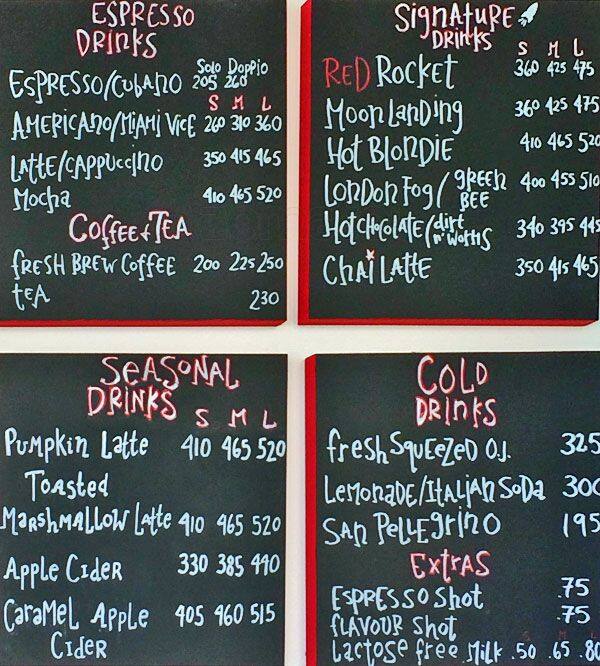 ESPRESSO
DRINKS
Solo Doppio
ESPRESSO/CUBANO 205 260
S M L
AMERICANO/MIAMI VICE 260 310 360
LATTE/CAPPUCCINO 350 415 465
Mocha 410 465 520
Coffee+TEA
fRESH BREW Coffee 200 225 250
tEA 230
Signature
DRINKS
S M L
RED ROCKET 360 425 475
Moon Landing 360 425 475
Hot BLONDIE 410 465 520
LONDON FOG/ GREEN BEE 400 455 510
Hotchocolate/dirt n' worms 340 395 445
Chai LATTE 350 415 465
SEASONAL
DRINKS
S M L
Pumpkin Latte 410 465 520
Toasted
Marshmallow Latte 410 465 520
Apple CIDER 330 385 440
CaraMEL Apple 405 460 515
CIDER
COLD
DRINKS
fresh SquEEzED O.J. 325
LEMONADE/ITALIAN SoDa 300
SAN PELLEGRINO 195
Extras
ESPRESSO Shot .75
fLAVOUR Shot .75
S M L
Lactose free Milk .50 .65 .80